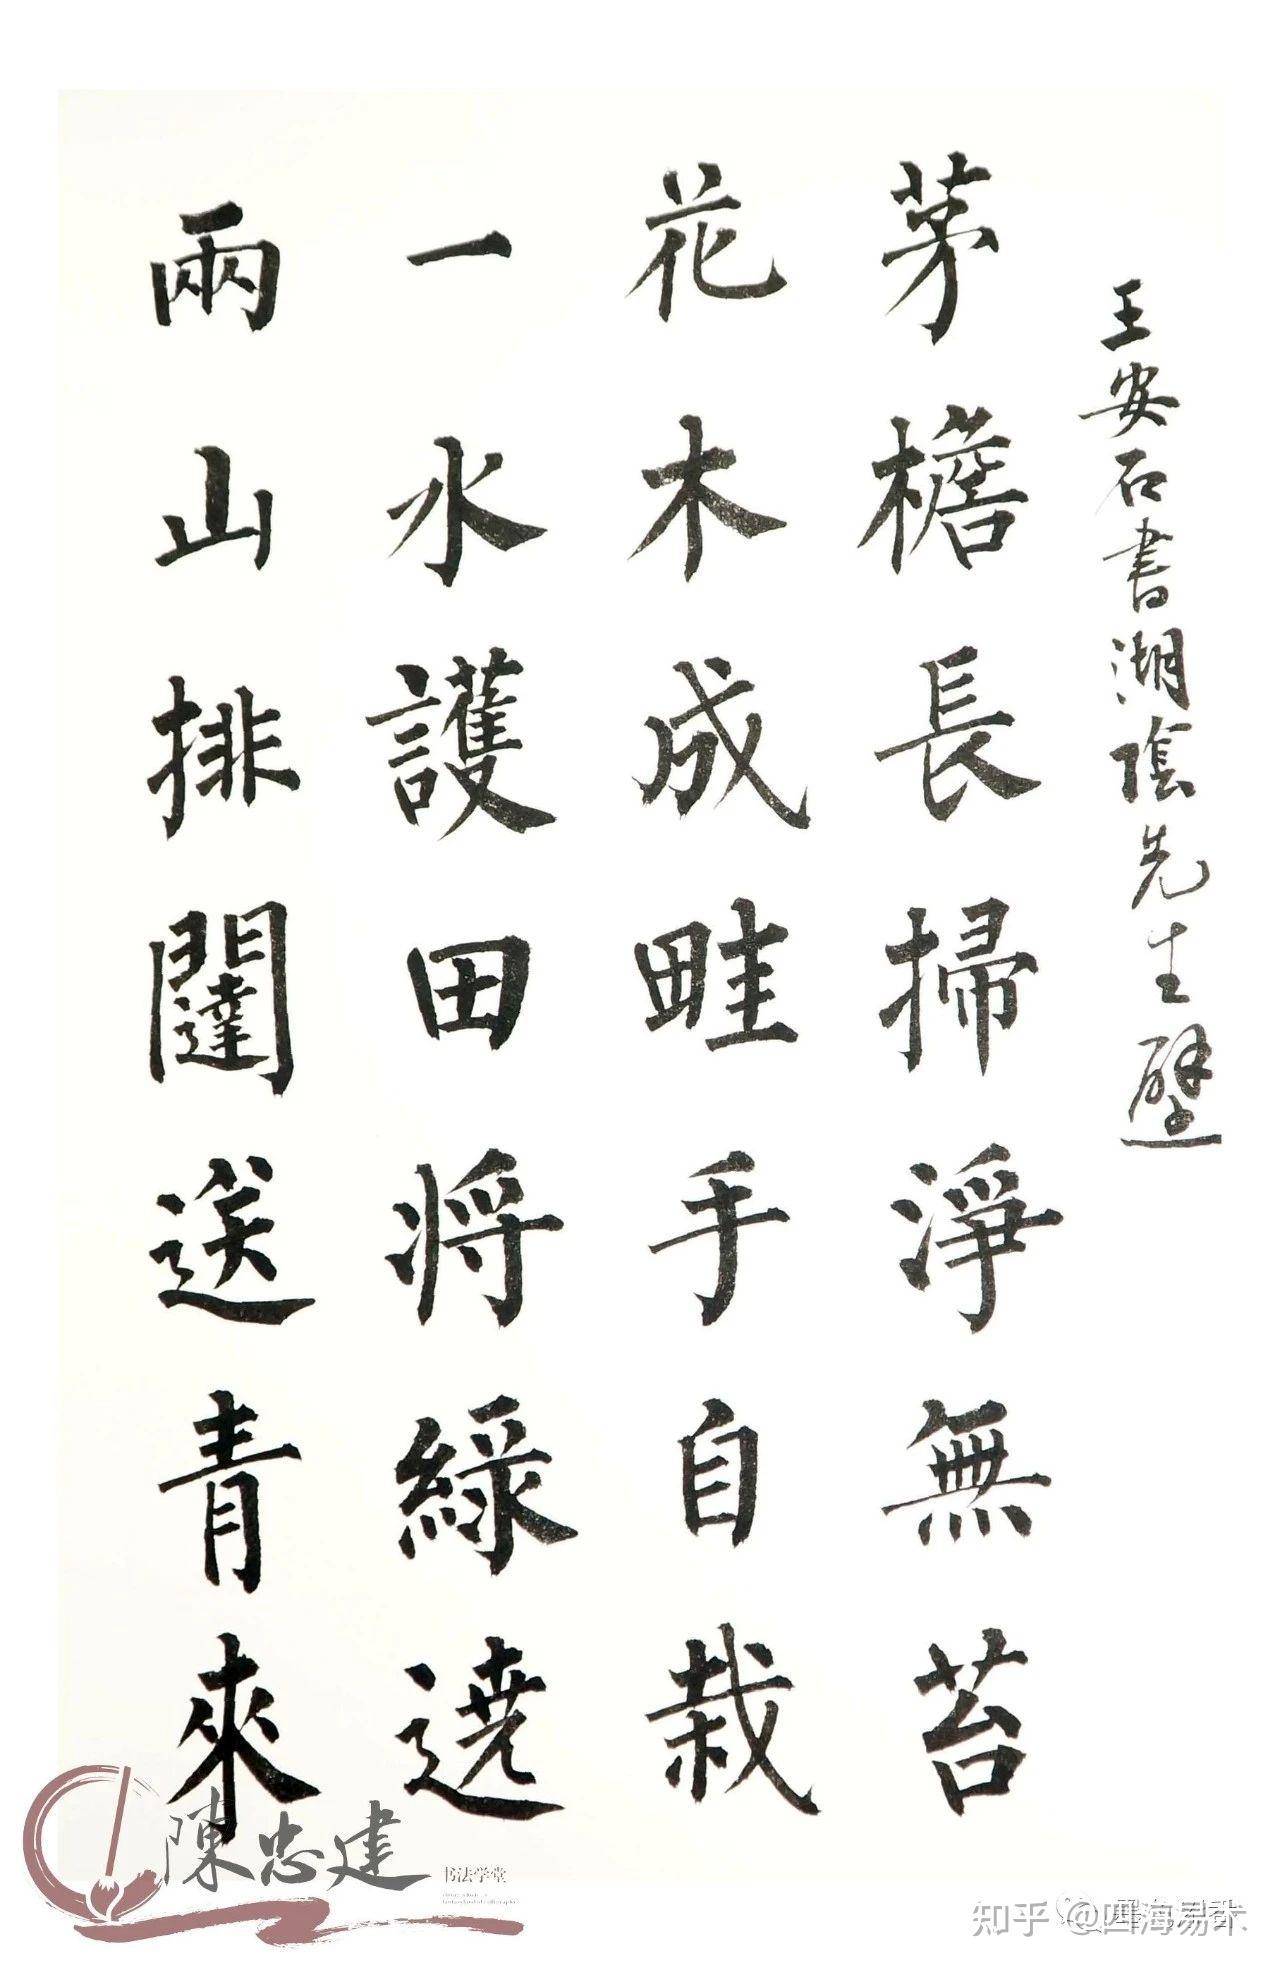 王安石書湖陰先生壁
茅檐長掃淨無苔
花木成畦手自栽
一水護田将綠遶
兩山排闥送青來
陳忠建
书法学堂
知乎 @四海易朩